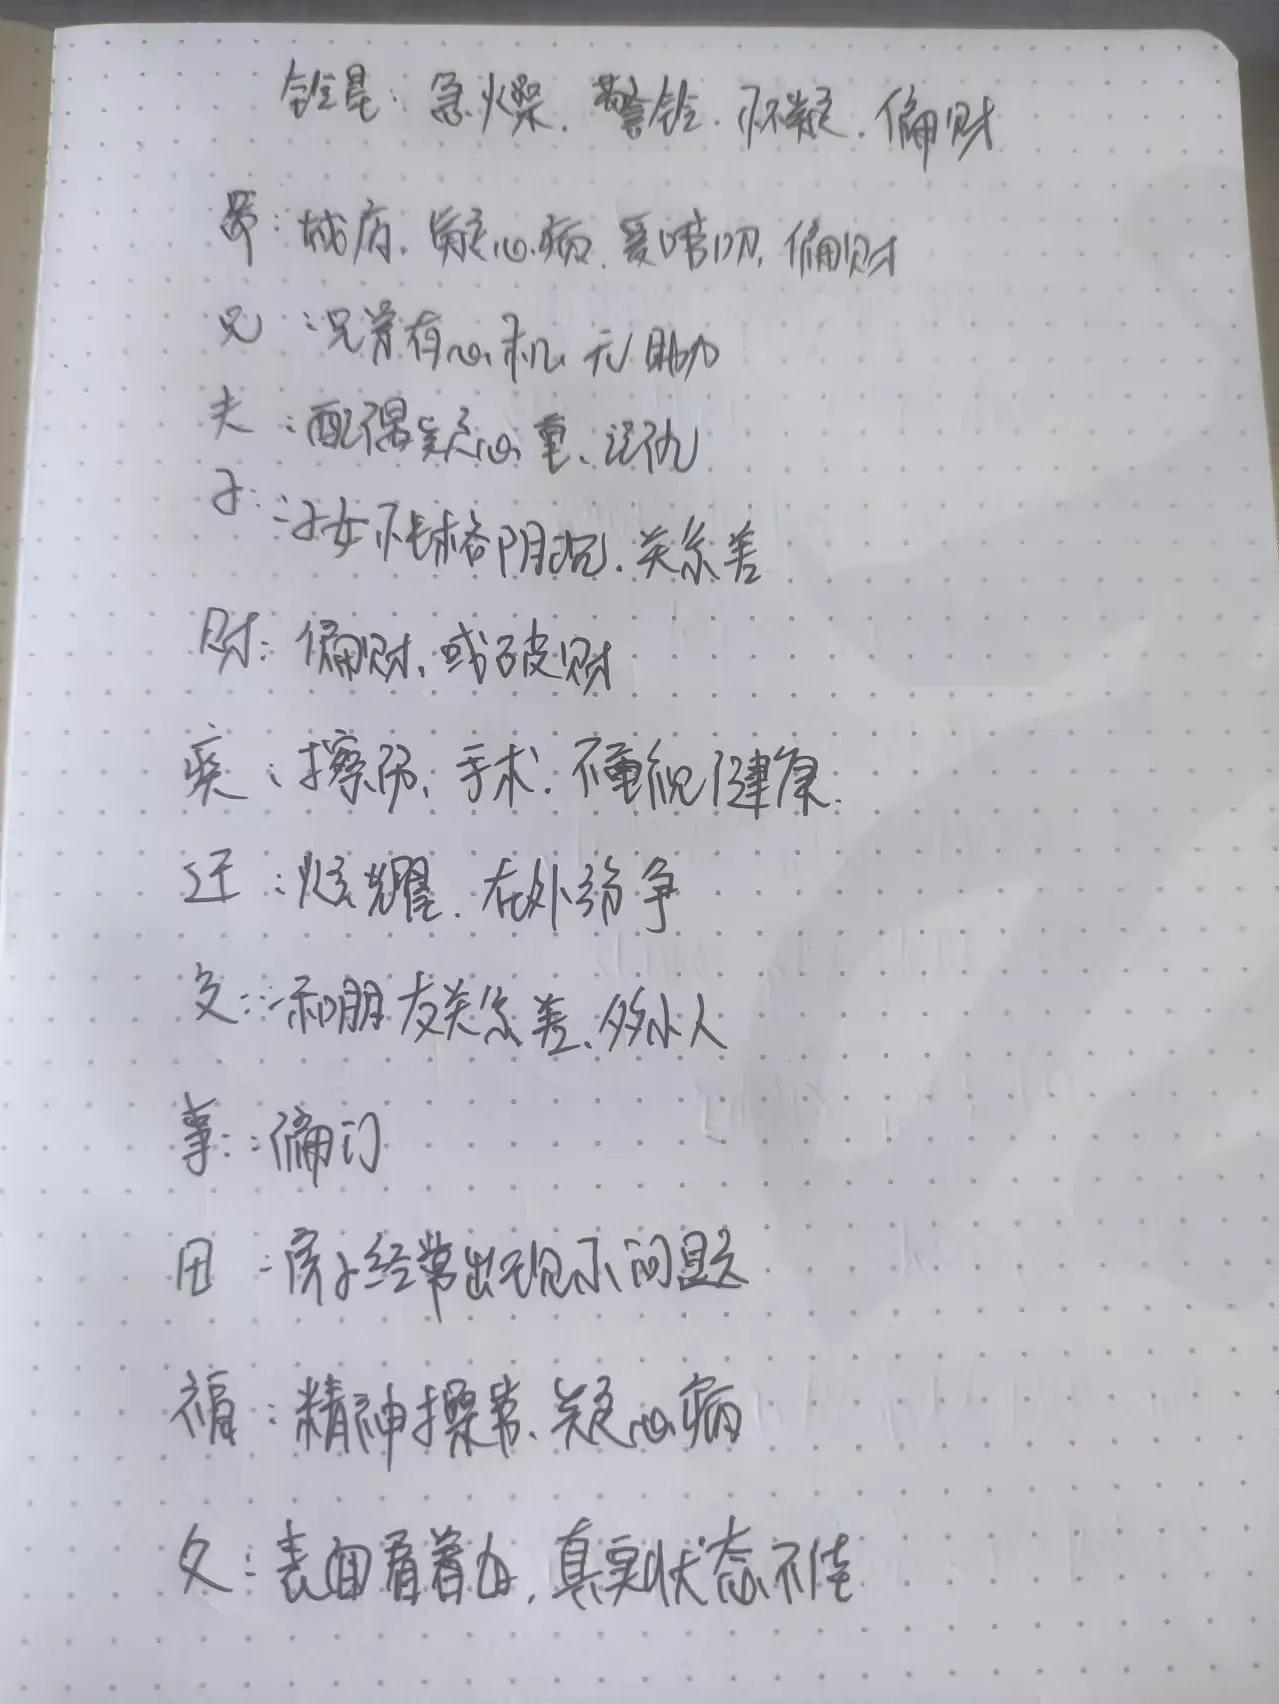 铃星：急燥．警铃．怀疑．偏财
命：城府．疑心病．爱唠叨，偏财
兄：兄弟有心机 无助力
夫：配偶疑心重、记仇
子：子女性格阴沉．关系差
财：偏财、或破财
疾：擦伤、手术．不重视健康．
迁：炫耀．在外纷争
友：和朋友关系差、多小人
事：偏门
田：房子经常出现小问题
福：精神操劳、疑心病
父：表面看着好，真实状态不佳